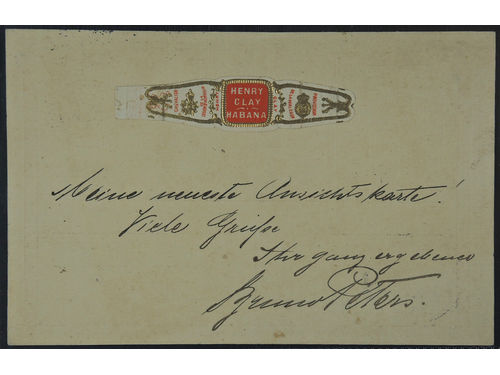 HENRY
CLAY
HABANA
Meine neueste Ansichtskarte!
Viele Grüße
Ihr ganz ergebener
Bruno Peters.